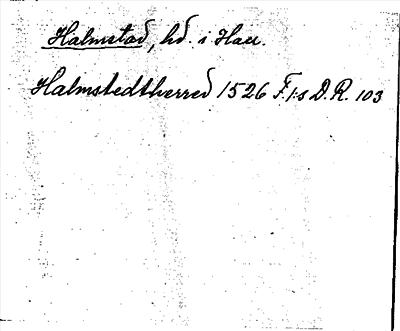 Halmstad, hd. i Hall.
Halmstedtherred 1526 F.I:s D.R. 103